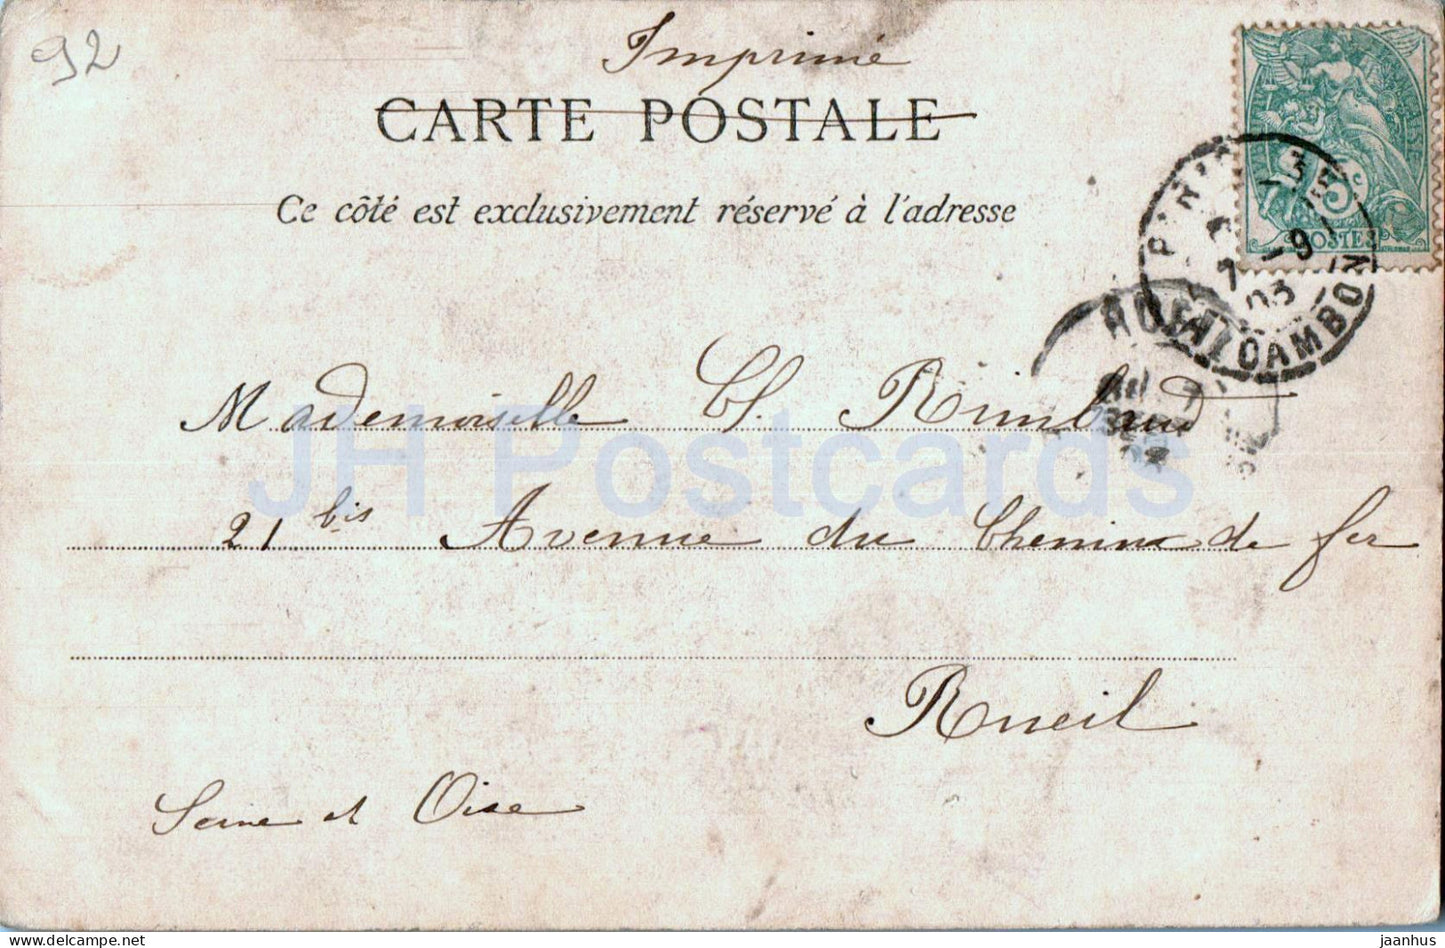 92
Imprimé
CARTE POSTALE
Ce côté est exclusivement réservé à l'adresse
5c
POSTES
PARIS
7 -9
03
RUE CAMBON
Mademoiselle Cl. Rimbaud
21 bis Avenue du Chemin de fer
Rueil
Seine et Oise
JH Postcards
www.delcampe.net
jaanhus